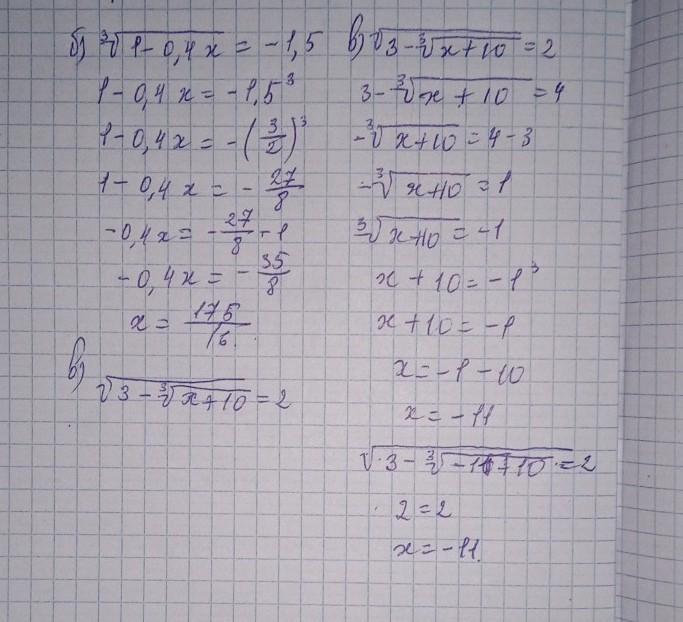 б) ∛(1 - 0,4x) = -1,5
1 - 0,4x = -1,5³
1 - 0,4x = -(3/2)³
1 - 0,4x = -27/8
-0,4x = -27/8 - 1
-0,4x = -35/8
x = 175/16.
в)
√(3 - ∛(x+10)) = 2
в) √(3 - ∛(x+10)) = 2
3 - ∛(x + 10) = 4
-∛(x+10) = 4 - 3
-∛(x+10) = 1
∛(x+10) = -1
x + 10 = -1³
x + 10 = -1
x = -1 - 10
x = -11
√(3 - ∛(-11+10)) = 2
2 = 2
x = -11.